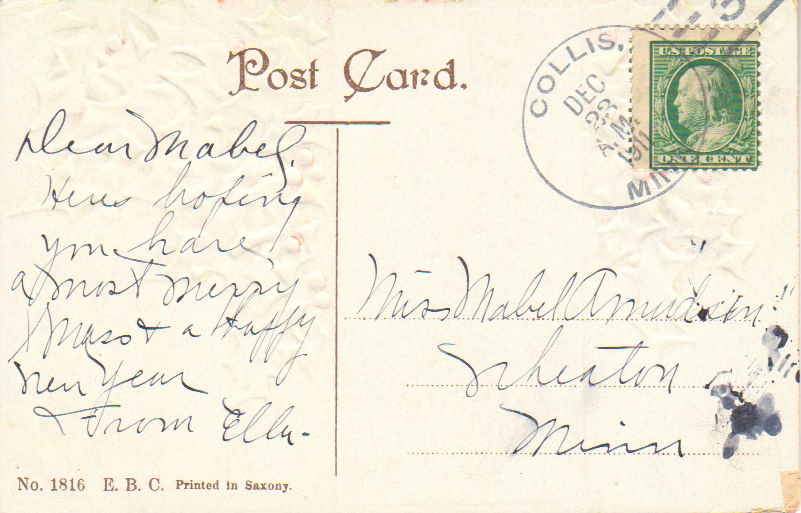 Post Card.
COLLIS,
DEC
23
A.M.
MINN
U.S. POSTAGE
ONE CENT
Dear Mabel.
Heres hoping
you have
a most merry
Xmass & a Happy
New Year
From Ella-
Miss Mabel Amudsen
Wheaton
Minn
No. 1816 E. B. C. Printed in Saxony.